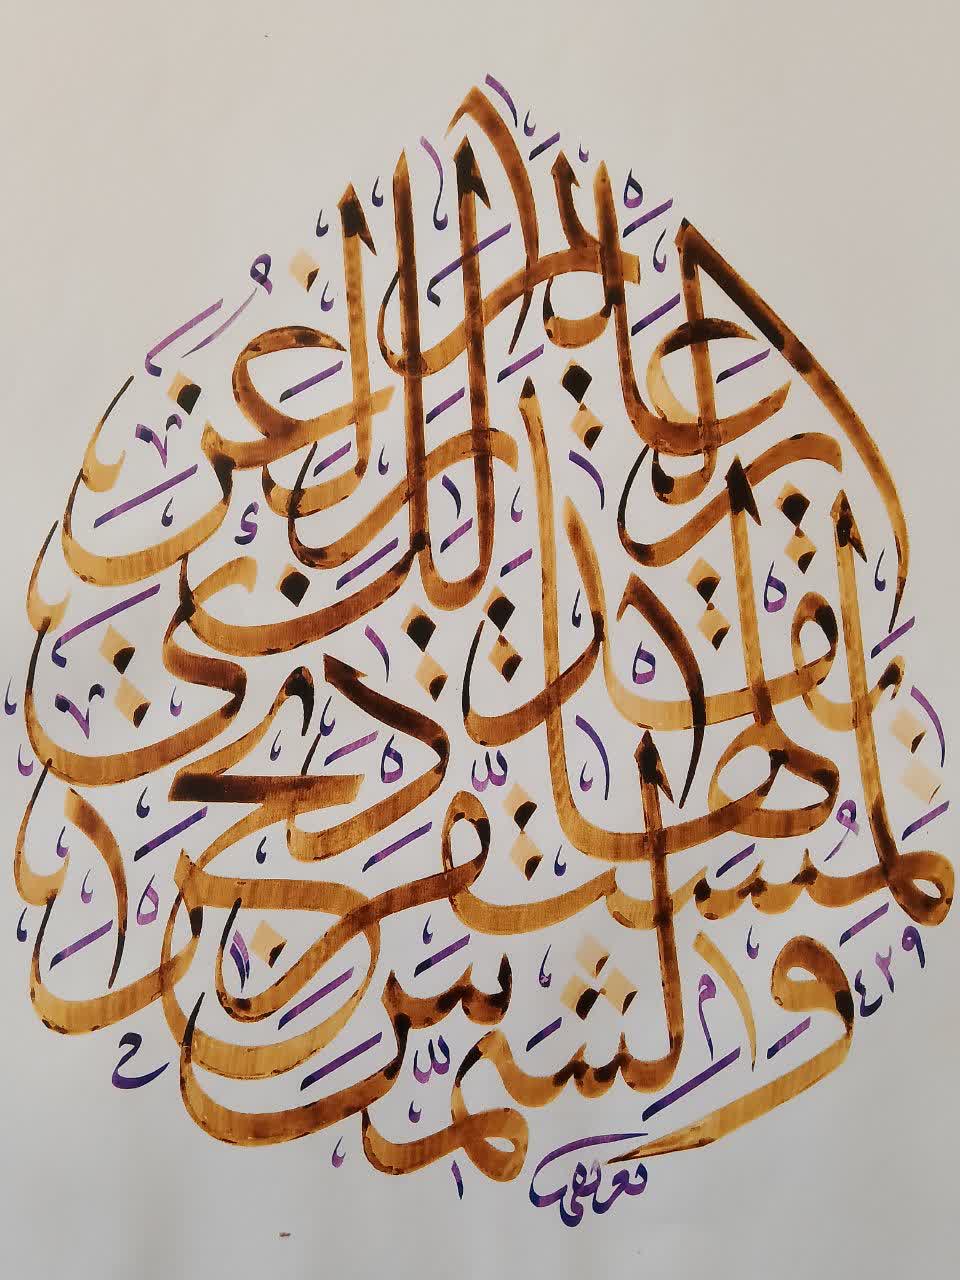 وَالشَّمْسُ تَجْرِي
لِمُسْتَقَرٍّ لَهَا
ذَلِكَ تَقْدِيرُ
الْعَزِيزِ الْعَلِيمِ
٤٢٩